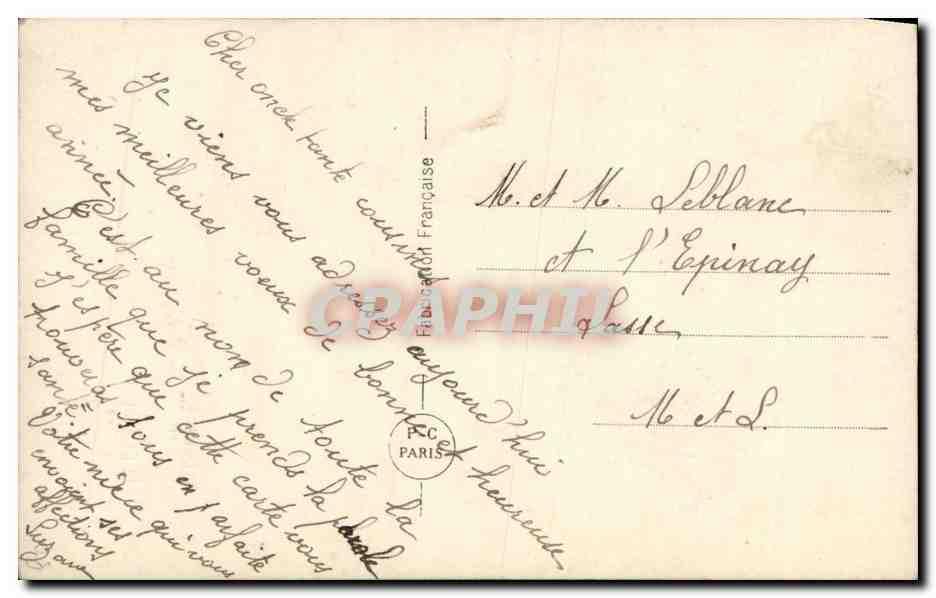 Cher oncle tante cousines
Je viens vous adresser aujourd'hui
mes meilleures voeux de bonne et heureuse
année. C'est au nom de toute la
famille que je prends la parole
J'espère que cette carte vous
trouveras tous en parfaite
santé
Votre nièce qui vous
envoient ses
affections
Suzane
Fabrication Française
P-C
PARIS
M. et M. Leblanc
et l'Epinay
Lasse
M et L.
CRAPHIL